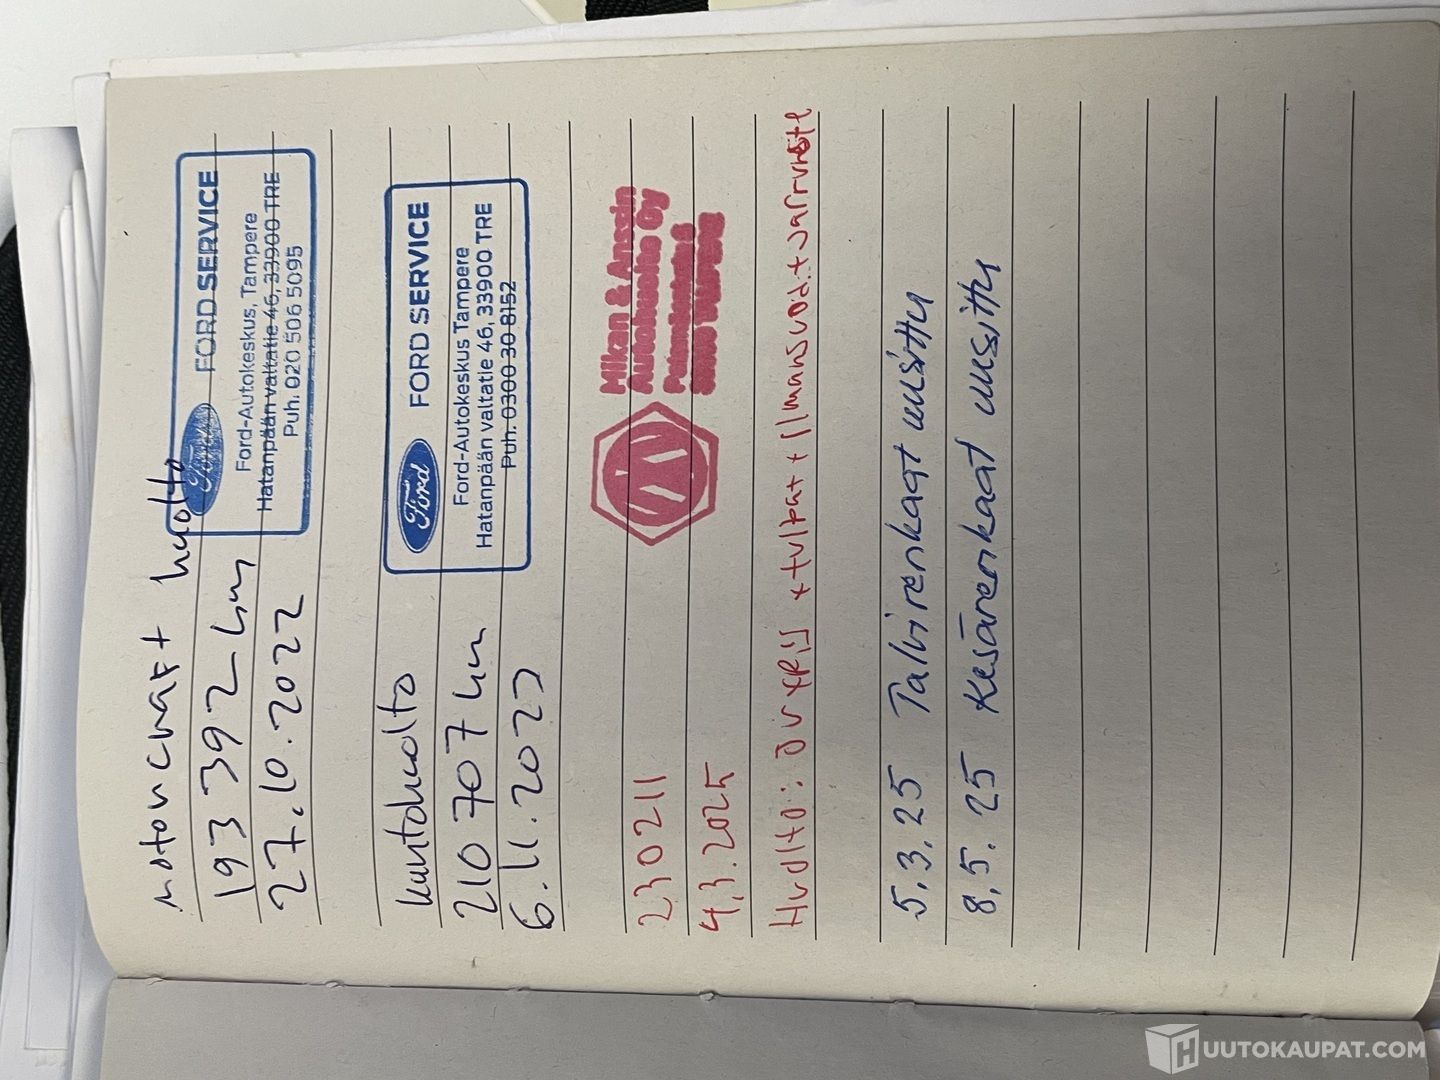 motoncraft huolto
193 392 km
27.10.2022
Ford FORD SERVICE
Ford-Autokeskus, Tampere
Hatanpään valtatie 46, 33900 TRE
Puh. 020 506 5095
kuntohuolto
210 707 km
6.11.2023
Ford FORD SERVICE
Ford-Autokeskus Tampere
Hatanpään valtatie 46, 33900 TRE
Puh. 0300 30 8152
230211
4.3.2025
Mikan & Anssin
Autohuolto Oy
Huolto: öljy +tulpat + ilmansuod.+Jarruneste
5.3.25 Talvirenkaat uusittu
8.5.25 Kesärenkaat uusittu
HUUTOKAUPAT.COM